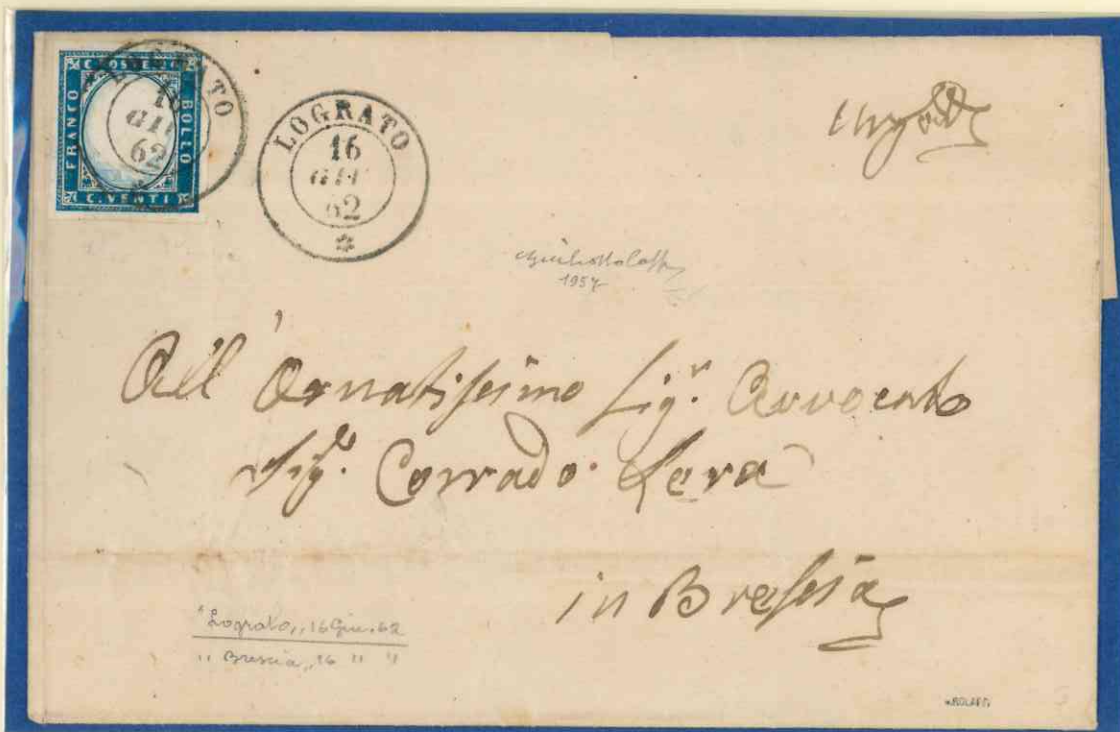 C. POSTE
FRANCO
BOLLO
C. VENTI
LOGRATO
16
GIU
62
LOGRATO
16
GIU
62
1957
All'Ornatissimo Sigr. Avvocato
Sigr. Corrado Leva
in Brescia
"Lograto,, 16 Giu. 62
" Brescia,, 16 " "